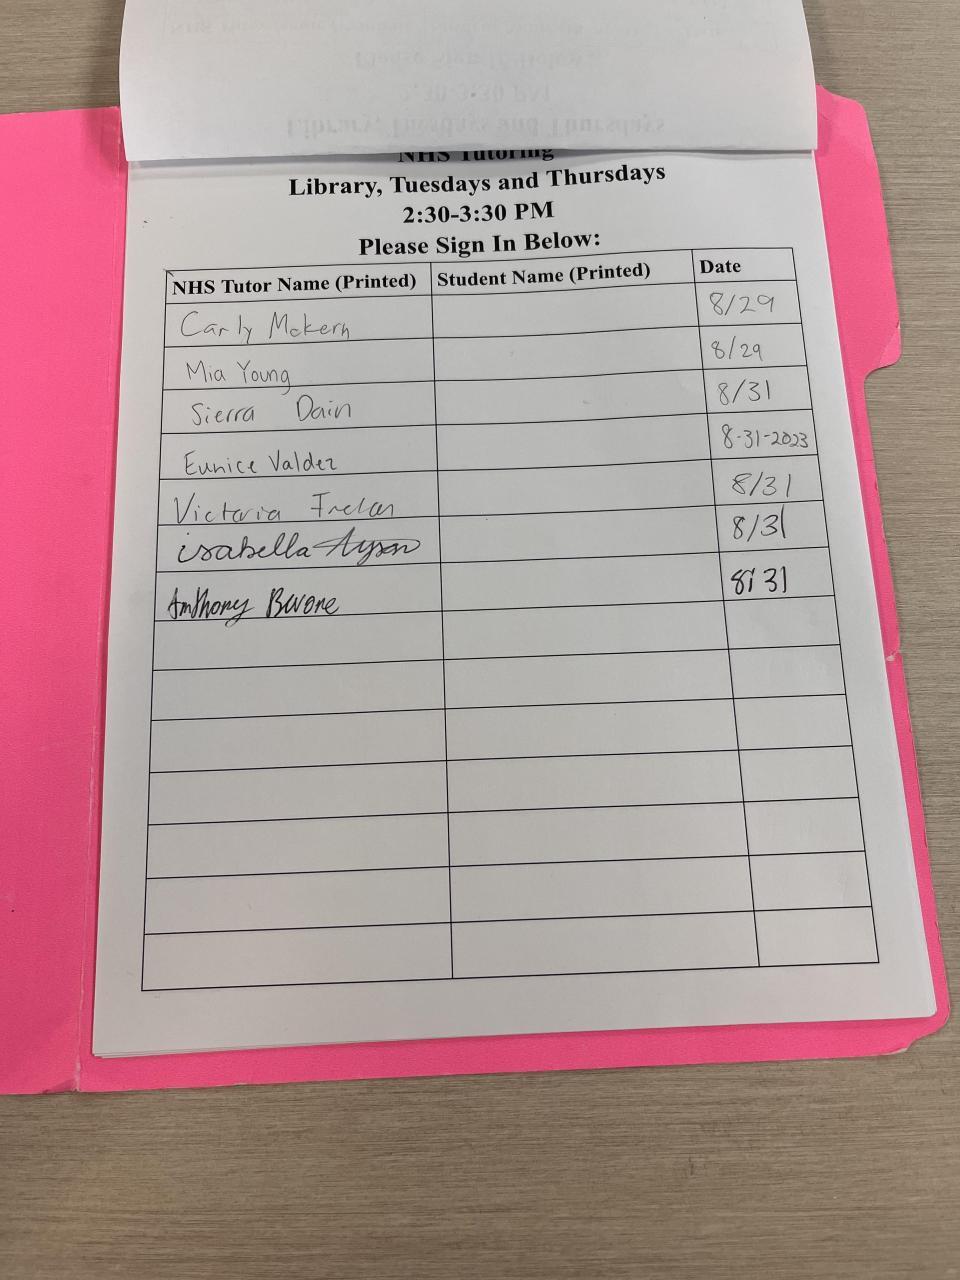 NHS Tutoring
Library, Tuesdays and Thursdays
2:30-3:30 PM
Please Sign In Below:
NHS Tutor Name (Printed) Student Name (Printed) Date
Carly McKern 8/29
Mia Young 8/29
Sierra Dain 8/31
Eunice Valdez 8-31-2023
Victoria 8/31
isabella 8/31
Anthony 8/31